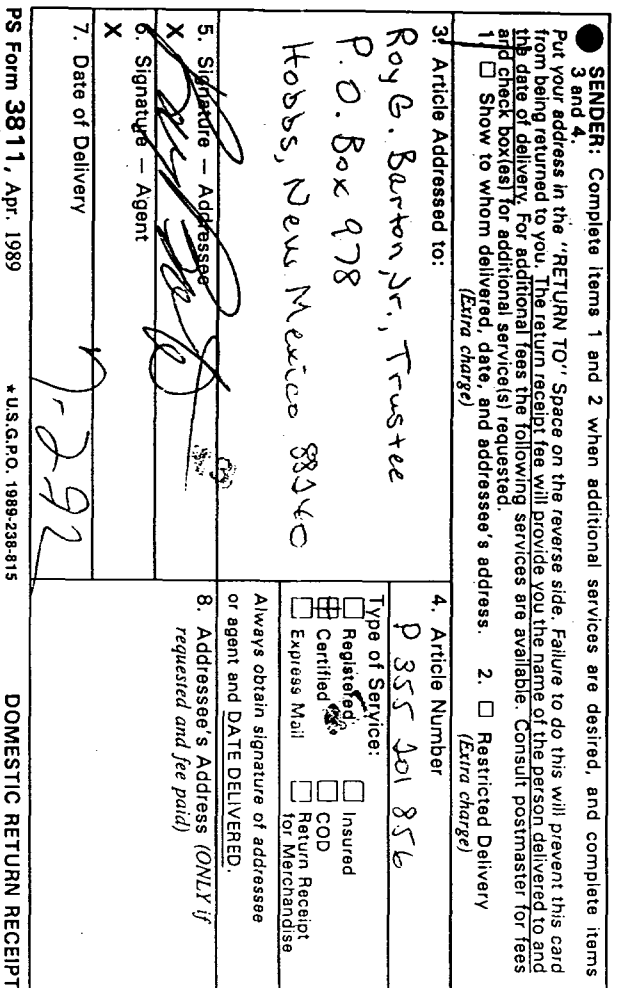 SENDER: Complete items 1 and 2 when additional services are desired, and complete items
3 and 4.
Put your address in the "RETURN TO" Space on the reverse side. Failure to do this will prevent this card
from being returned to you. The return receipt fee will provide you the name of the person delivered to and
the date of delivery. For additional fees the following services are available. Consult postmaster for fees
and check box(es) for additional service(s) requested.
1. ☐ Show to whom delivered, date, and addressee's address. 2. ☐ Restricted Delivery
(Extra charge) (Extra charge)
3. Article Addressed to:
Roy G. Barton, Jr., Trustee
P.O. Box 978
Hobbs, New Mexico 88240
4. Article Number
P 355 201 856
Type of Service:
☐ Registered ☐ Insured
☒ Certified ☐ COD
☐ Express Mail ☐ Return Receipt
for Merchandise
Always obtain signature of addressee
or agent and DATE DELIVERED.
5. Signature — Addressee
X
6. Signature — Agent
X
7. Date of Delivery
8. Addressee's Address (ONLY if
requested and fee paid)
PS Form 3811, Apr. 1989 * U.S.G.P.O. 1989-238-815 DOMESTIC RETURN RECEIPT